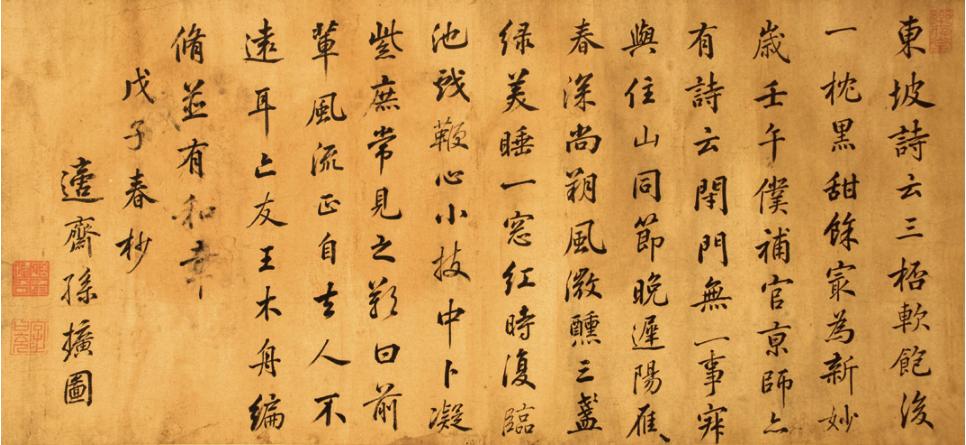 東坡詩云三桮軟飽後
一枕黑甜餘㝡為新妙
歲壬午僕補官京師亦
有詩云閉門無一事寂
與住山同節晚遲陽雁
春深尚朔風微醺三盞
緑美睡一窓紅時復臨
池戲鞭心小技中卜凝
紫庶常見之歎曰前
輩風流正自去人不
遠耳亡友王木舟編
脩並有和章
戊子春杪
適齋孫擴圖